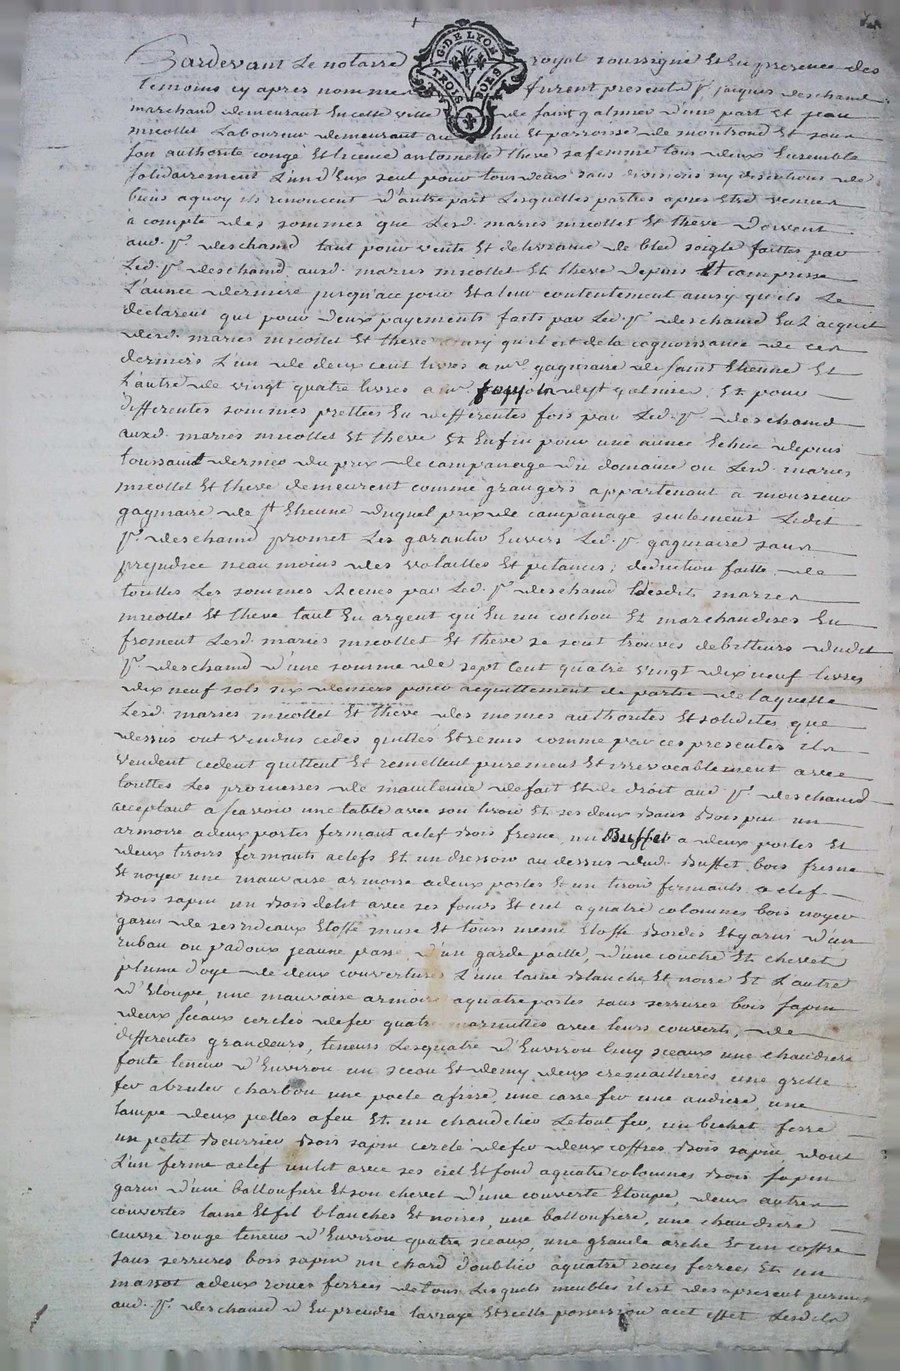 G. DE LYON
TROIS POLS
Pardevant Le notaire royal soussigné Et En presence des
temoins cy apres nommé furent presents Sr. jacques deschamd
marchand demeurant En cette ville de saint galmier d'une part Et jean
micollet Laboureur demeurant au lieu Et parroisse de montrond Et sous
son authorité congé Et licence antoinette theve sa femme tous deux Ensemble
solidairement L'un d'Eux seul pour tous deux sans divisions ny discutions de
biens aquoy ils renoncent d'autre part Lesquelles parties apres Etre venues
a compte des sommes que Lesd. maries micollet Et theve doivent
aud. Sr. deschamd tant pour vente Et delivrance de bled seigle faittes par
Led. Sr. deschamd ausd. maries micollet Et theve depuis Et compris
L'année derniere jusqu'ace jour Et aleur contentement ainsy qu'ils Le
declarent que pour deux payements faits par Led. Sr. deschamd En L'acquit
desd. maries micollet Et theve ainsy qu'il est de la cognoissance de ces
derniers L'un de deux cent livres a mr. gagniaire de saint Etienne Et
L'autre de vingt quatre livres a mr. de St galmier, Et pour
differentes sommes prettées En differentes fois par Led. Sr. deschamd
auxd. maries micollet Et theve Et Enfin pour une année Echue depuis
toussaint dernier du prix de campanage du domaine ou Lesd. maries
micollet Et theve demeurent comme grangers appartenant a monsieur
gagniaire de St Etienne duquel prix de campanage seulement Ledit
Sr. deschamd promet Les garantir Envers Led. Sr. gagniaire sans
prejudice neanmoins des volailles Et pitances; deduction faitte de
touttes Les sommes recues par Led. Sr. deschamd desdits maries
micollet Et theve tant En argent qu'En un cochon Et marchandises En
froment Lesd. maries micollet Et theve se sont trouves debitteurs dudit
Sr. deschamd d'une somme de sept cent quatre vingt dix neuf livres
dix neuf sols six deniers pour acquittement de partie de laquelle
Lesd. maries micollet Et theve des memes authorités Et solidités que
dessus ont vendus cedés quittés Et remis comme par ces presentes ils
vendent cedent quittent Et remettent purement Et irrevocablement avec
touttes Les promesses de maintenue de fait Et de droit aud. Sr. deschamd
acceptant a scavoir une table avec son tiroir Et ses deux bans bois pin un
armoire a deux portes fermant a clef bois fresne, un Buffet a deux portes Et
deux tiroirs fermants a clefs Et un dressoir au dessus dud. Buffet bois fresne
Et noyer une mauvaise armoire a deux portes Et un tiroir fermants a clef
bois sapin un bois de lit avec ses fonds Et ciel a quatre colomnes bois noyer
garni de ses rideaux Etoffe Et tours meme Etoffe bordés Et garni d'un
ruban ou padoux jeaune passé, d'un garde paille, d'une couetre Et chevet
plume d'oye de deux couvertures L'une laine blanche Et noire Et L'autre
d'Etoupe, une mauvaise armoire a quatre portes sans serrures bois sapin
deux sceaux cerclés de fer quatre marmittes avec leurs couverts, de
differentes grandeurs, teneurs Lesquatre d'Environ cinq sceaux une chaudiere
fonte teneur d'Environ un sceau Et demy deux cremaillieres une grille
fer a bruler charbon une poele a frire, une casse fer une andiere, une
lampe deux pelles a feu Et un chandelier Le tout fer, un bichet ferré
un petit beurrier bois sapin cerclé de fer deux coffres bois sapin, dont
L'un ferme a clef un lit avec ses ciel Et fond a quatre colomnes bois sapin
garni d'une ballouffiere Et son chevet d'une couverte Etoupe, deux autres
couvertes laine Et fil blanches Et noires, une ballouffiere, une chaudiere
cuivre rouge teneur d'Environ quatre sceaux, une grande arche Et un coffre
sans serrures bois sapin un chard d'oublier a quatre roues ferrées Et un
massot a deux roues ferrées de tous Lesquels meubles il est des apresent permis
aud. Sr. deschamd d'En prendre la vraye Et réelle possession a cet effet Lesd.